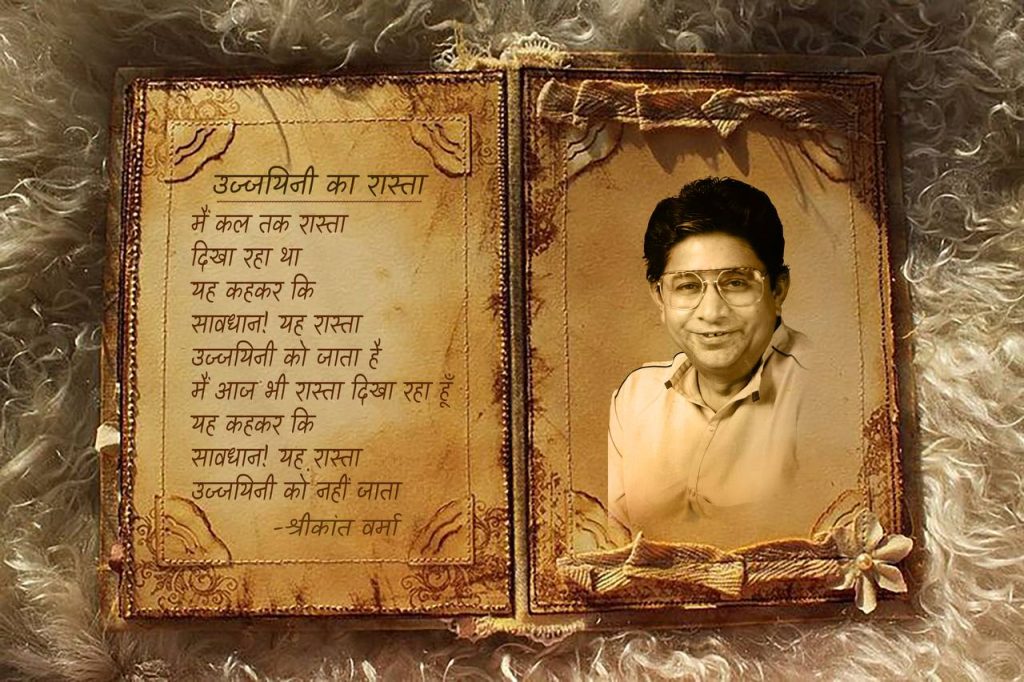 उज्जयिनी का रास्ता
मैं कल तक रास्ता
दिखा रहा था
यह कहकर कि
सावधान! यह रास्ता
उज्जयिनी को जाता है
मैं आज भी रास्ता दिखा रहा हूँ
यह कहकर कि
सावधान! यह रास्ता
उज्जयिनी को नहीं जाता
-श्रीकांत वर्मा